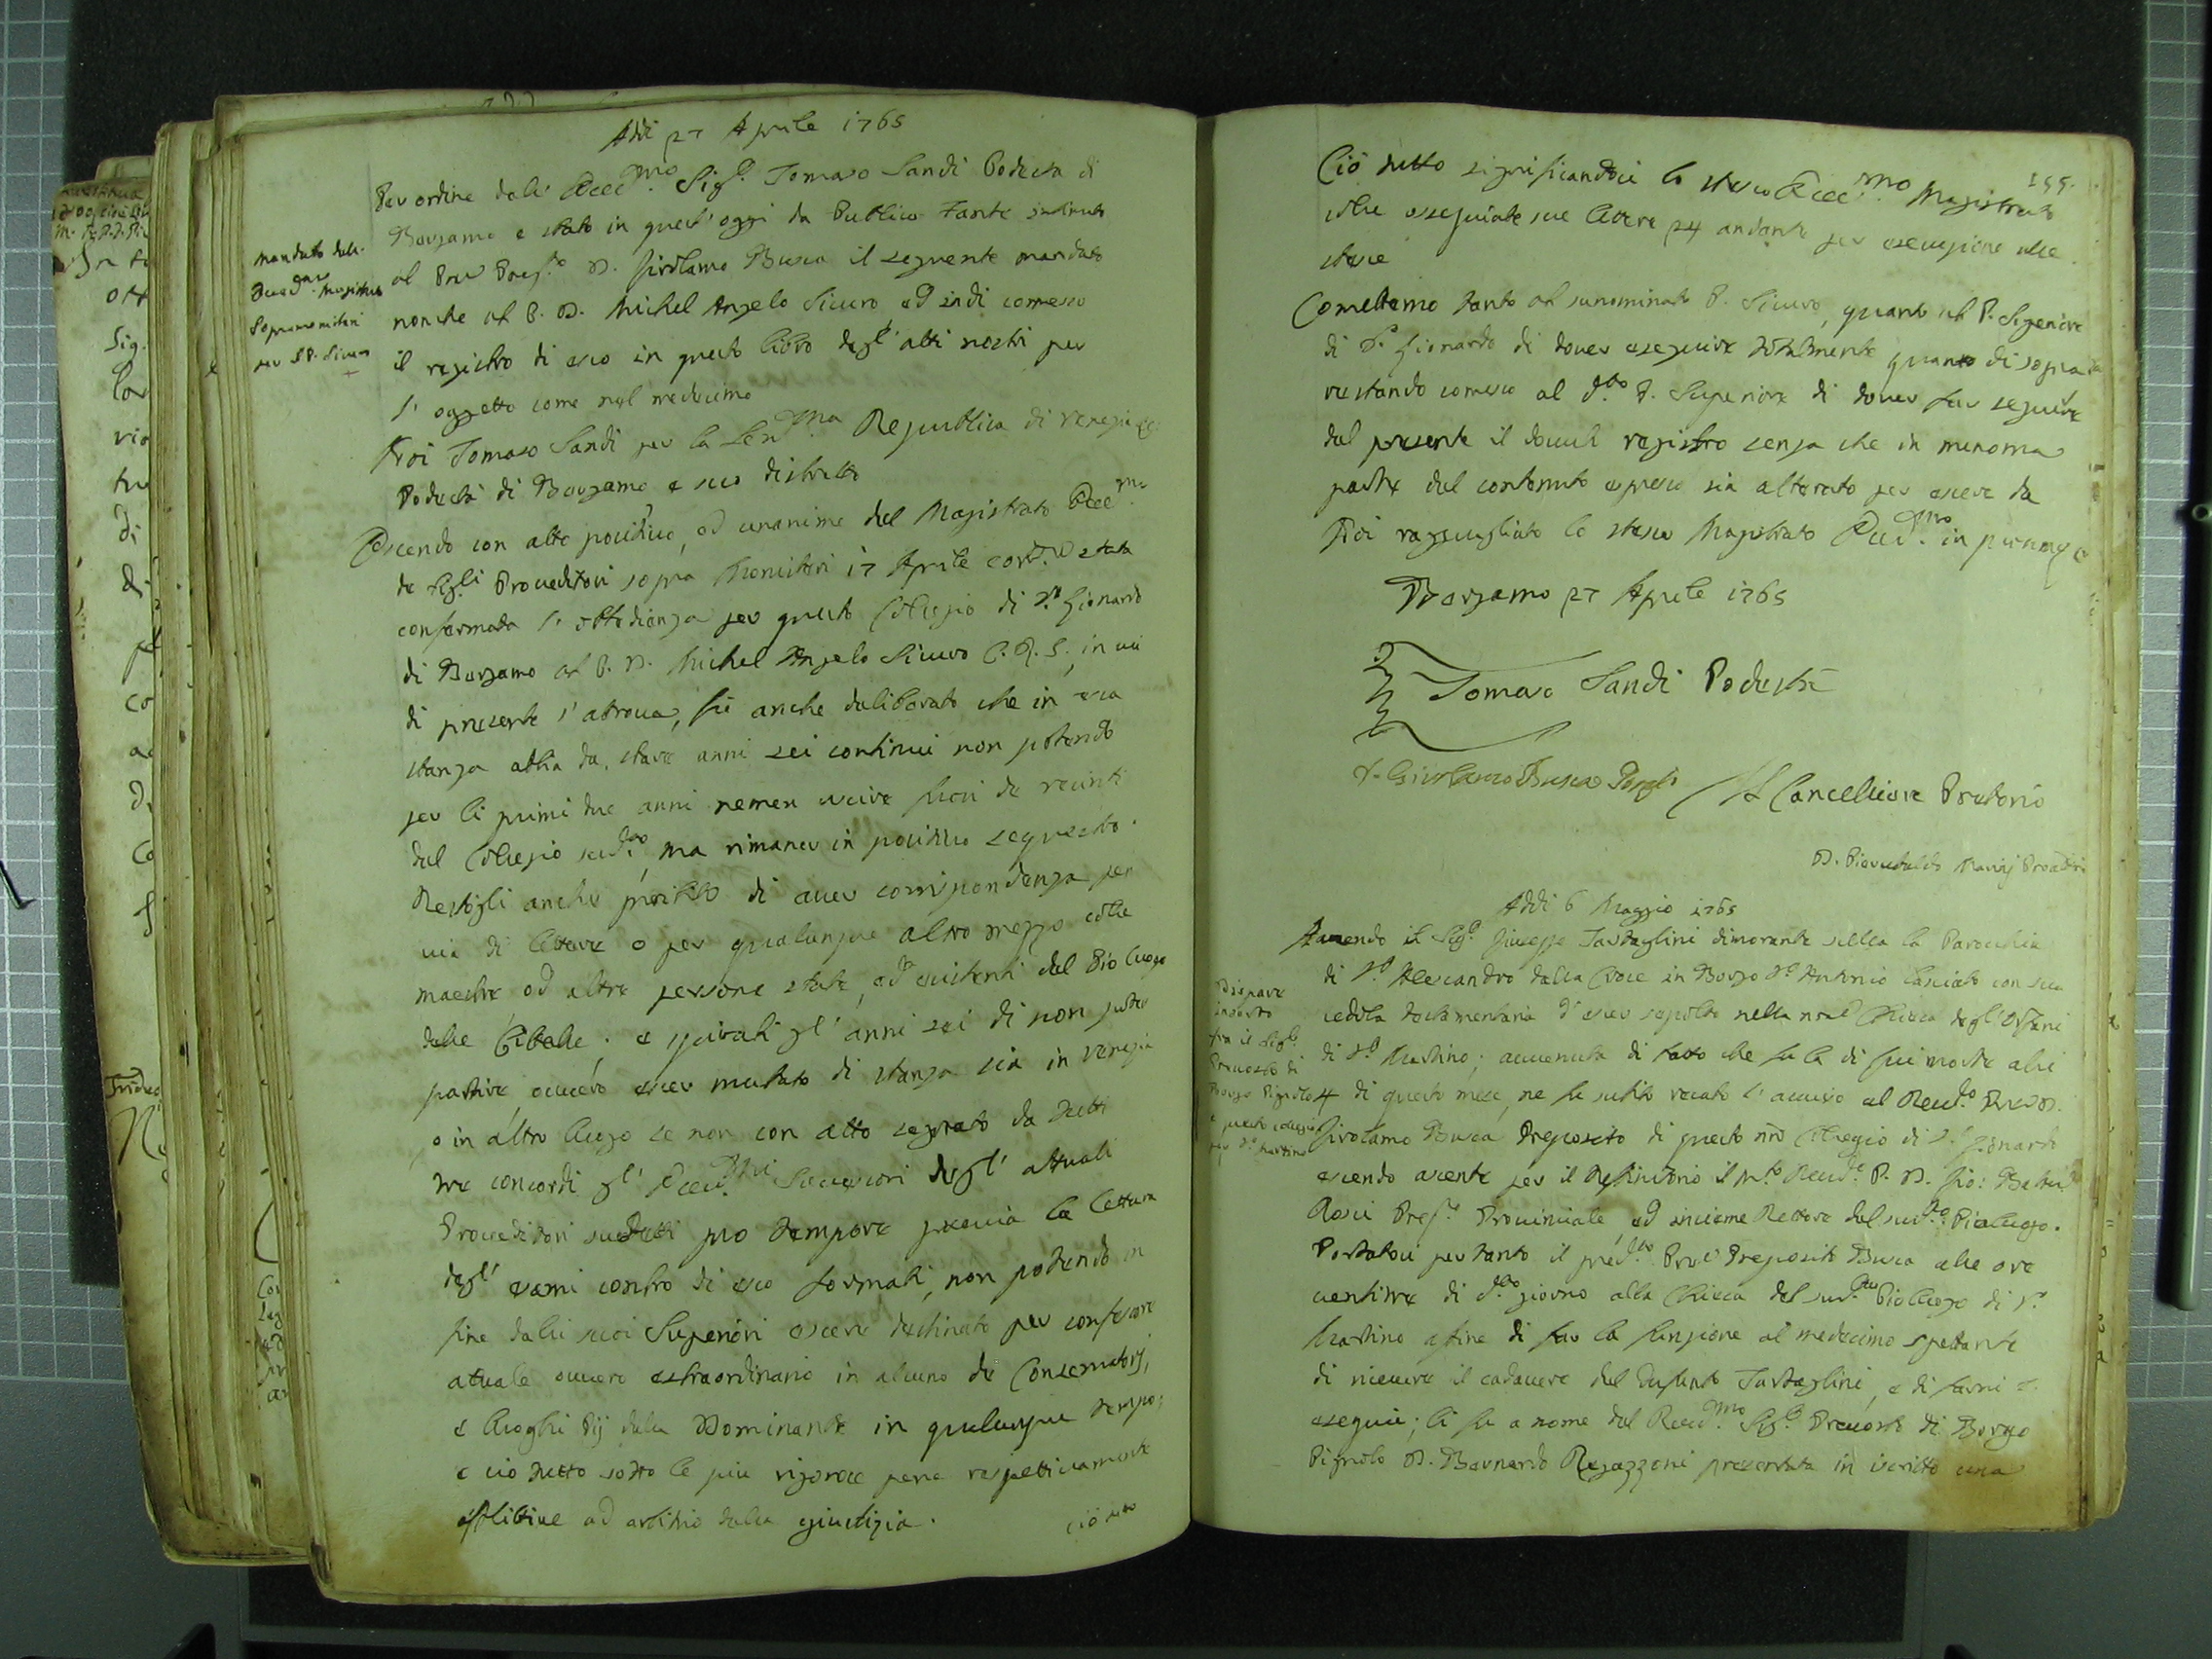 Addi 27 Aprile 1765
Per ordine dell' Ecc.mo Sig.r Tomaso Sandi Podestà di
Bergamo è stato in quest' oggi da Publico Fante intimato
al Pre Prep.to D. Girolamo Busca il seguente mandato
nonche al P. D. Michel Angelo Sicuro ed indi comesso
il registro di esso in questo libro degl' atti nostri per
l' oggetto come nel medesimo
Noi Tomaso Sandi per la Ser.ma Republica di Venezia
Podestà di Bergamo e suo distretto
Essendo con atto positivo, ed unanime del Magistrato Ecc.mo
de Sig.li Proveditori sopra Monisteri 17 Aprile corr.e stata
confermata l' obbedienza per questo Collegio di S. Lionardo
di Bergamo al P. D. Michel Angelo Sicuro C. R. S., in cui
di presente s' atrova, fù anche deliberato che in essa
stanza abbia da stare anni sei continui non potendo
per li primi due anni nemen uscire fuori de recinti
del Collegio sud.to ma rimaner in positivo sequestro.
Restogli anche proibito di aver corrispondenza per
via di lettere o per qualunque altro mezzo colle
maestre od altre persone state, ed esistenti nel Pio Luogo
delle Citelle; e spirati gl' anni sei di non poter
partire ovvero esser mutato di stanza sia in Venezia
o in altro luogo se non con atto segnato da tutti
tre concordi gl' Ecc.mi Successori degl' attuali
Proveditori sudetti pro tempore previa la lettura
degl' esami contro di esso formati, non potendo in
fine dalli suoi Superiori essere destinato per confessore
atuale ovvero estraordinario in alcuno de Conservatorj,
e Luoghi Pij della Dominante in qualunque tempo;
e ciò tutto sotto le più rigorose pene respettivamente
afflittive ad arbitrio della giustizia.
ciò tutto
Mandato dell'
Ecc.mo Magistrato
Sopramonisteri
per il P. Sicuro
155.
Ciò tutto significandoci lo stesso Ecc.mo Magistrato
colle ossequiate sue lettere 24 andante per esecuzione alle
stesse
Comettemo tanto al sunominato P. Sicuro, quanto al P. Superiore
di S. Lionardo di dover eseguire totalmente quanto di sopra
restando comesso al d.to P. Superiore di dover far seguire
del presente il dovuto registro senza che in menoma
parte del contenuto espresso sia alterato per esser da
Noi raguagliato lo stesso Magistrato Ecc.mo
Bergamo 27 Aprile 1765
Tomaso Sandi Podestà
D. Girolamo Busca Prep.to
Il Cancelliere Pretorio
Addi 6 Maggio 1765
Avendo il Sig.r Giuseppe Tartaglini dimorante sulla la Parochia
di S. Alessandro della Croce in Borgo S. Antonio lasciato con sua
cedola testamentaria d' esser sepolto nella nra Chiesa degl' Orfani
di S. Martino; avvenuta di fatto che fu la di lui morte alli
4 di questo mese, ne fu subito recato l' avviso al Rev.do Pre D.
Girolamo Busca Preposito di questo nro Collegio di S. Lionardo
essendo assente per il Definitorio il M.to Rev.do P. D. Gio: Batta
Rossi Prep.to Provinciale, ed insieme Rettore del sud.to Pio Luogo.
Portatosi per tanto il pred.to Pre Preposito Busca alle ore
ventitre di d.to giorno alla Chiesa del sud.to Pio Luogo di S.
Martino a fine di far la funzione al medesimo spettante
di ricevere il cadavere del defunto Tartaglini, e di farni
esequie; li fu a nome del Rev.mo Sig.r Prevosto di Borgo
Pignolo D. Bernardo Regazzoni presentata in iscritto una
Dispare
insorto
fra il Sig.r
Prevosto di
Borgo Pignolo
e questo Collegio
per S. Martino